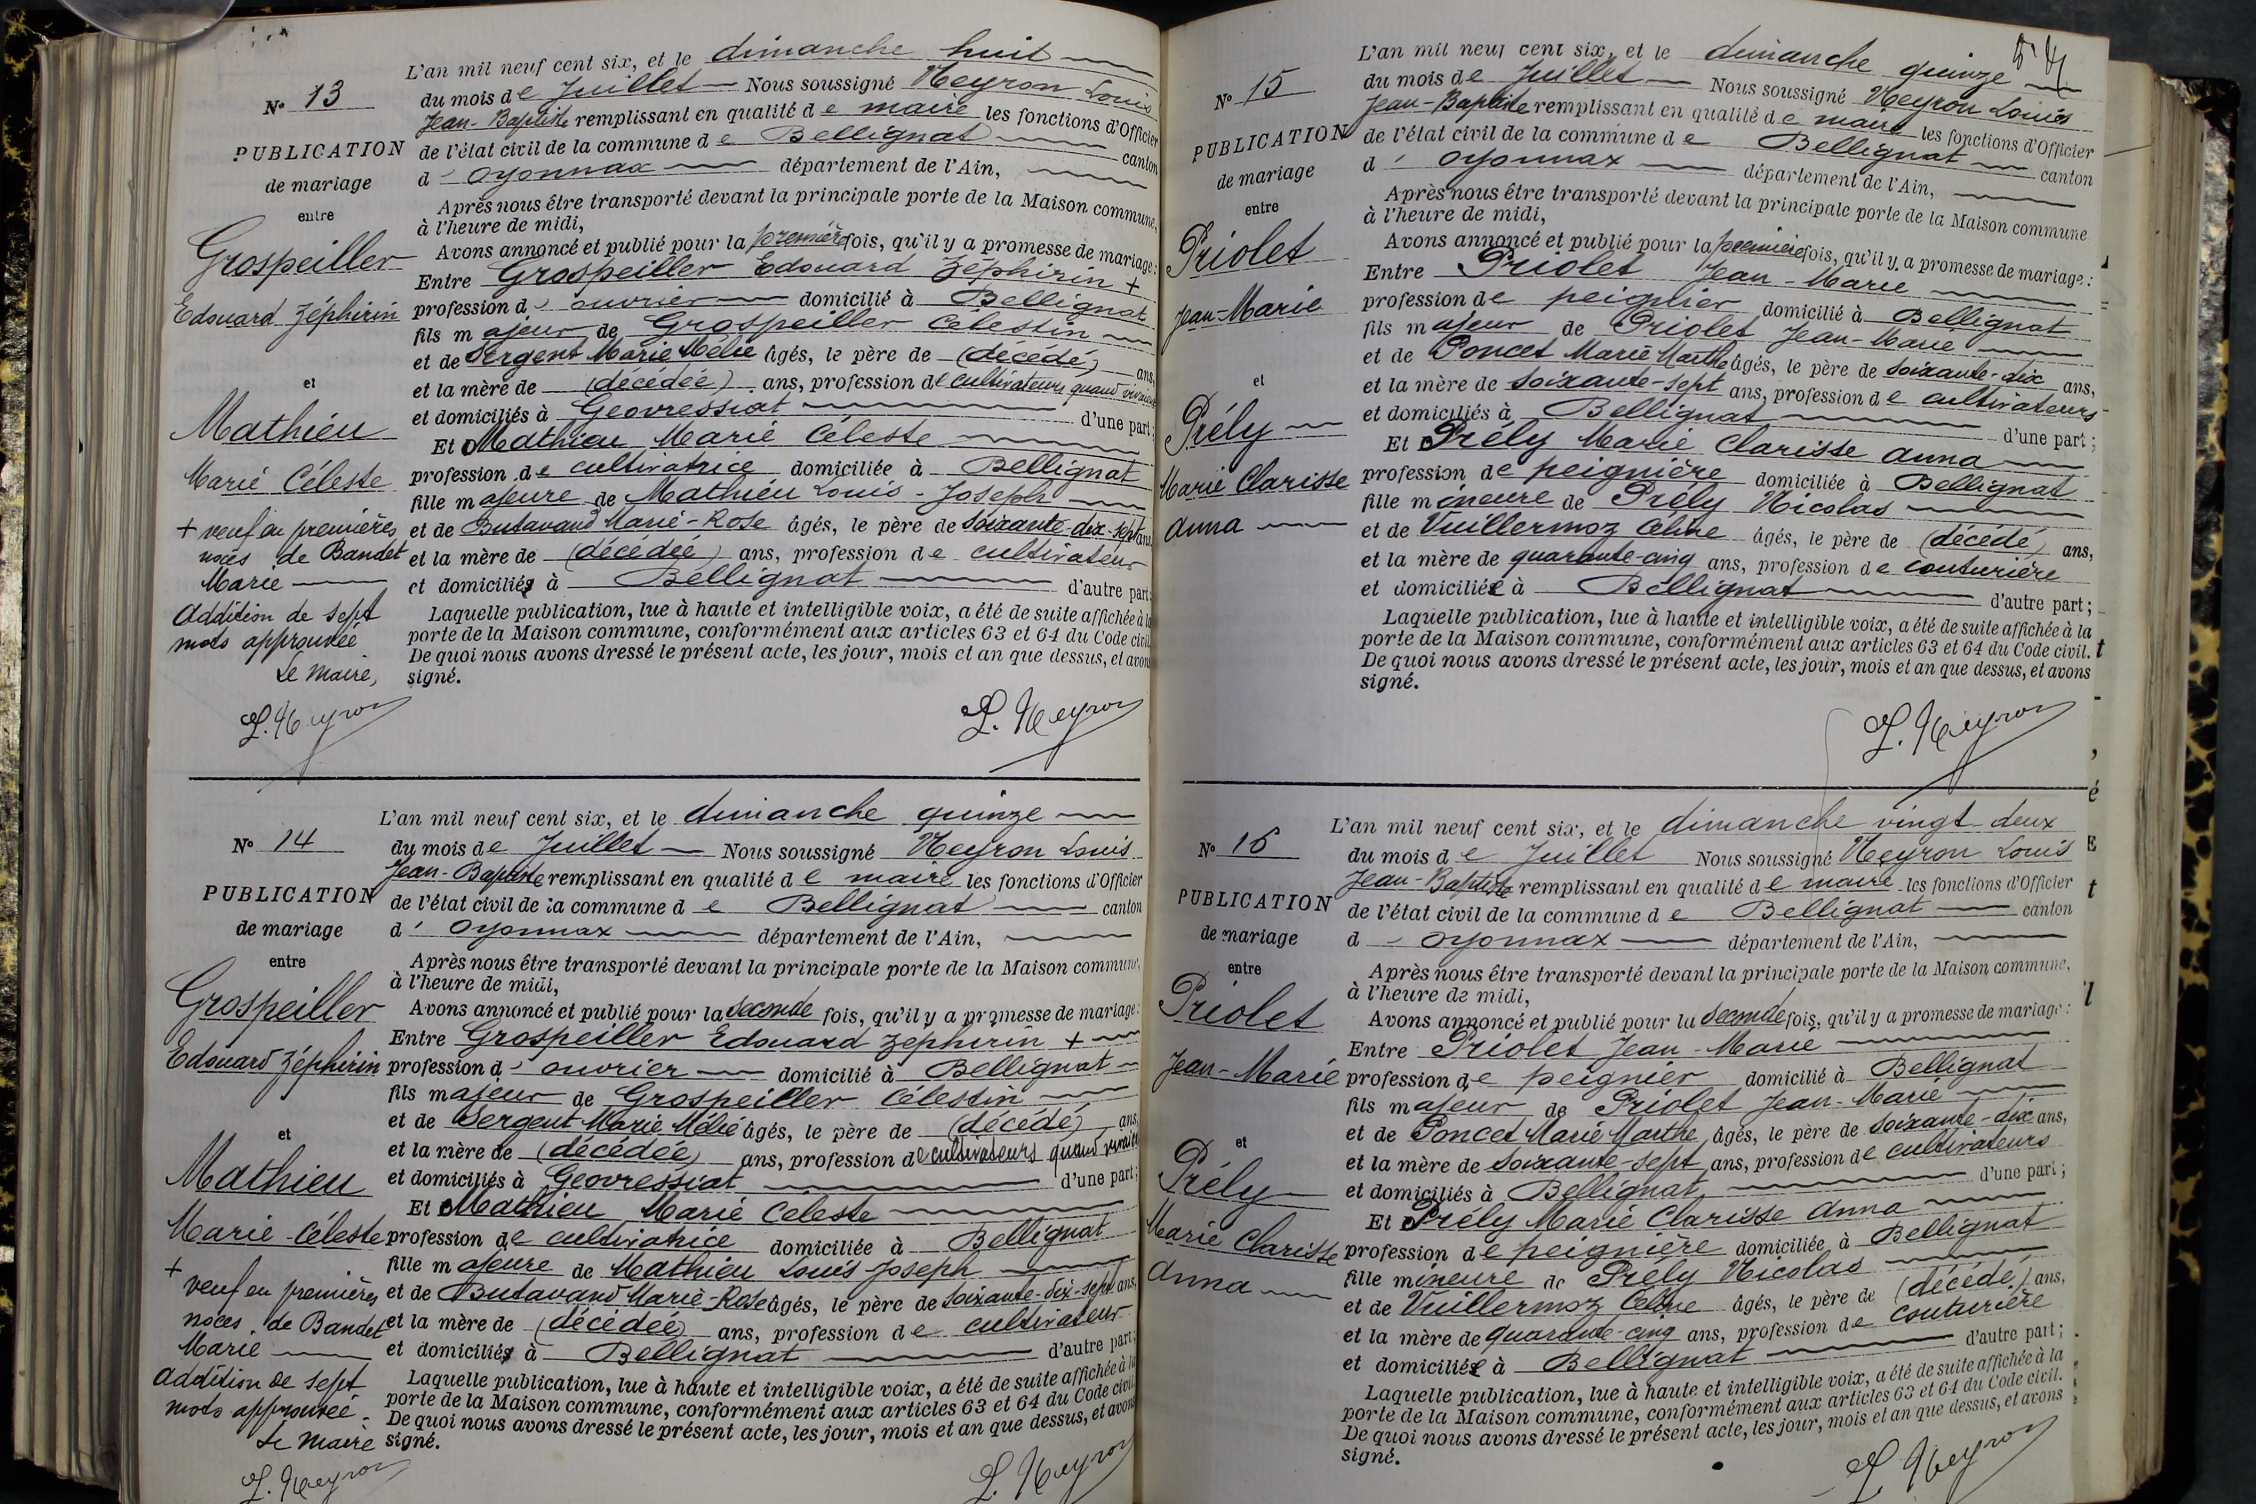 N° 13
PUBLICATION
de mariage
entre
Grospeiller
Edouard Zéphirin
et
Mathieu
Marie Céleste
+ veuf en premières
noces de Bandet
Marie
Addition de sept
mots approuvée
Le Maire,
L. Neyron
L'an mil neuf cent six, et le dimanche huit
du mois de Juillet Nous soussigné Neyron Louis
Jean-Baptiste remplissant en qualité de maire les fonctions d'Officier
de l'état civil de la commune de Bellignat canton
d' Oyonnax département de l'Ain,
Après nous être transporté devant la principale porte de la Maison commune,
à l'heure de midi,
Avons annoncé et publié pour la première fois, qu'il y a promesse de mariage :
Entre Grospeiller Edouard Zéphirin +
profession d' ouvrier domicilié à Bellignat
fils majeur de Grospeiller Célestin
et de Sergent Marie Mélie âgés, le père de (décédé) ans,
et la mère de (décédée) ans, profession de cultivateurs quand vivaient
et domiciliés à Geovressiat d'une part ;
Et Mathieu Marie Céleste
profession de cultivatrice domiciliée à Bellignat
fille majeure de Mathieu Louis-Joseph
et de Butavand Marie-Rose âgés, le père de soixante-dix-sept ans,
et la mère de (décédée) ans, profession de cultivateur
et domicilié à Bellignat d'autre part ;
Laquelle publication, lue à haute et intelligible voix, a été de suite affichée à la
porte de la Maison commune, conformément aux articles 63 et 64 du Code civil.
De quoi nous avons dressé le présent acte, les jour, mois et an que dessus, et avons
signé.
L. Neyron
N° 14
PUBLICATION
de mariage
entre
Grospeiller
Edouard Zéphirin
et
Mathieu
Marie Céleste
+
veuf en premières
noces de Bandet
Marie
Addition de sept
mots approuvée.
Le Maire
L. Neyron
L'an mil neuf cent six, et le dimanche quinze
du mois de Juillet Nous soussigné Neyron Louis
Jean-Baptiste remplissant en qualité de maire les fonctions d'Officier
de l'état civil de la commune de Bellignat canton
d' Oyonnax département de l'Ain,
Après nous être transporté devant la principale porte de la Maison commune,
à l'heure de midi,
Avons annoncé et publié pour la seconde fois, qu'il y a promesse de mariage :
Entre Grospeiller Edouard Zéphirin +
profession d' ouvrier domicilié à Bellignat
fils majeur de Grospeiller Célestin
et de Sergent Marie Mélie âgés, le père de (décédé) ans,
et la mère de (décédée) ans, profession de cultivateurs quand vivaient
et domiciliés à Geovressiat d'une part ;
Et Mathieu Marie Céleste
profession de cultivatrice domiciliée à Bellignat
fille majeure de Mathieu Louis Joseph
et de Butavand Marie-Rose âgés, le père de soixante-dix-sept ans,
et la mère de (décédée) ans, profession de cultivateur
et domicilié à Bellignat d'autre part ;
Laquelle publication, lue à haute et intelligible voix, a été de suite affichée à la
porte de la Maison commune, conformément aux articles 63 et 64 du Code civil.
De quoi nous avons dressé le présent acte, les jour, mois et an que dessus, et avons
signé.
L. Neyron
N° 15
PUBLICATION
de mariage
entre
Priolet
Jean-Marie
et
Prély
Marie Clarisse
Anna
L'an mil neuf cent six, et le dimanche quinze
du mois de Juillet Nous soussigné Neyron Louis
Jean-Baptiste remplissant en qualité de maire les fonctions d'Officier
de l'état civil de la commune de Bellignat canton
d' Oyonnax département de l'Ain,
Après nous être transporté devant la principale porte de la Maison commune
à l'heure de midi,
Avons annoncé et publié pour la première fois, qu'il y a promesse de mariage :
Entre Priolet Jean-Marie
profession de peignier domicilié à Bellignat
fils majeur de Priolet Jean-Marie
et de Poncet Marie Marthe âgés, le père de soixante-dix ans,
et la mère de soixante-sept ans, profession de cultivateurs
et domiciliés à Bellignat d'une part ;
Et Prély Marie Clarisse Anna
profession de peignière domiciliée à Bellignat
fille mineure de Prély Nicolas
et de Vuillermoz Céline âgés, le père de (décédé) ans,
et la mère de quarante-cinq ans, profession de couturière
et domiciliée à Bellignat d'autre part ;
Laquelle publication, lue à haute et intelligible voix, a été de suite affichée à la
porte de la Maison commune, conformément aux articles 63 et 64 du Code civil.
De quoi nous avons dressé le présent acte, les jour, mois et an que dessus, et avons
signé.
L. Neyron
N° 16
PUBLICATION
de mariage
entre
Priolet
Jean-Marie
et
Prély
Marie Clarisse
Anna
L'an mil neuf cent six, et le dimanche vingt deux
du mois de Juillet Nous soussigné Neyron Louis
Jean-Baptiste remplissant en qualité de maire les fonctions d'Officier
de l'état civil de la commune de Bellignat canton
d' Oyonnax département de l'Ain,
Après nous être transporté devant la principale porte de la Maison commune,
à l'heure de midi,
Avons annoncé et publié pour la seconde fois, qu'il y a promesse de mariage :
Entre Priolet Jean-Marie
profession de peignier domicilié à Bellignat
fils majeur de Priolet Jean-Marie
et de Poncet Marie Marthe âgés, le père de soixante-dix ans,
et la mère de soixante-sept ans, profession de cultivateurs
et domiciliés à Bellignat d'une part ;
Et Prély Marie Clarisse Anna
profession de peignière domiciliée à Bellignat
fille mineure de Prély Nicolas
et de Vuillermoz Céline âgés, le père de (décédé) ans,
et la mère de quarante-cinq ans, profession de couturière
et domiciliée à Bellignat d'autre part ;
Laquelle publication, lue à haute et intelligible voix, a été de suite affichée à la
porte de la Maison commune, conformément aux articles 63 et 64 du Code civil.
De quoi nous avons dressé le présent acte, les jour, mois et an que dessus, et avons
signé.
L. Neyron